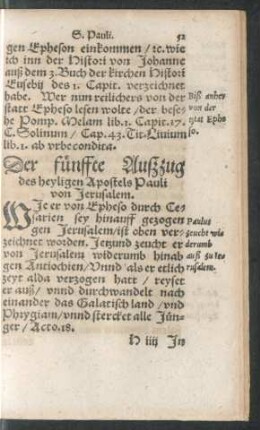 S. Pauli. 52
gen Epheson einkommen / ꝛc. wie
ich inn der Histori von Johanne
auß dem 3. Buch der kirchen Histori
Eusebij des 1. Capit. verzeichnet
habe. Wer nun weilichers von der
statt Epheso lesen wolte / der bese-
he Pomp. Melam lib. 1. Capit. 17.
C. Solinum / Cap. 43. Tit. Liuium
lib. 1. ab vrbe condita.
Biß anher
von der
statt Ephe
so.
Der fünffte Außzug
des heyligen Apostels Pauli
von Jerusalem.
WJe er von Epheso durch Ce-
sarien sey hinauff gezogen
gen Jerusalem / ist oben ver-
zeichnet worden. Jetzund zeucht er
von Jerusalem widerumb hinab
gen Antiochien / Vnnd als er etlich
zeyt alda verzogen hatt / reyset
er auß / vnnd durchwandelt nach
einander das Galatisch land / vnd
Phrygiam / vnnd stercket alle Jün-
ger / Acto. 18.
Paulus
zeucht wi
derumb
auß zu Je
rusalem.
H iiij Jn